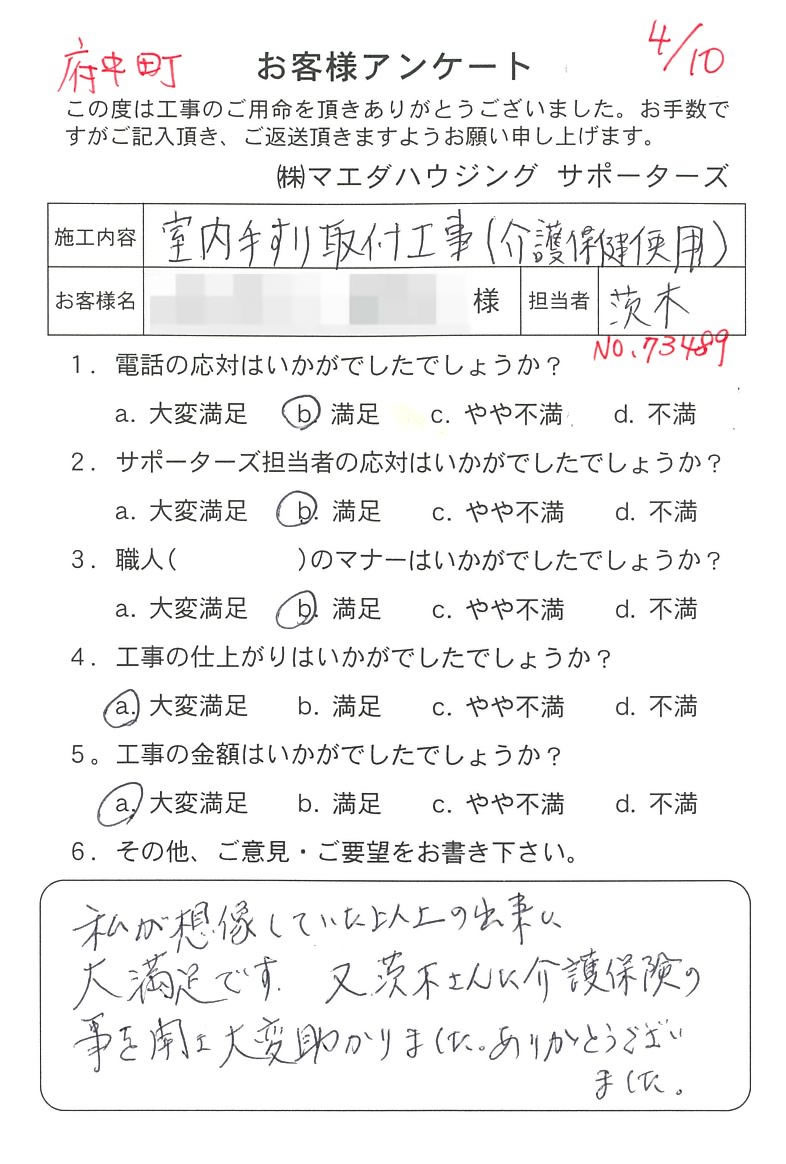 府中町 お客様アンケート 4/10
この度は工事のご用命を頂きありがとうございました。お手数で
すがご記入頂き、ご返送頂きますようお願い申し上げます。
㈱マエダハウジング サポーターズ
施工内容 室内手すり取付工事(介護保健使用)
お客様名 様 担当者 茨木
NO.73489
1. 電話の応対はいかがでしたでしょうか?
a. 大変満足 b. 満足 c. やや不満 d. 不満
2. サポーターズ担当者の応対はいかがでしたでしょうか?
a. 大変満足 b. 満足 c. やや不満 d. 不満
3. 職人( )のマナーはいかがでしたでしょうか?
a. 大変満足 b. 満足 c. やや不満 d. 不満
4. 工事の仕上がりはいかがでしたでしょうか?
a. 大変満足 b. 満足 c. やや不満 d. 不満
5。工事の金額はいかがでしたでしょうか?
a. 大変満足 b. 満足 c. やや不満 d. 不満
6. その他、ご意見・ご要望をお書き下さい。
私が想像していた以上の出来に
大満足です。 又茨木さんに介護保険の
事を聞き大変助かりました。ありがとうござい
ました。